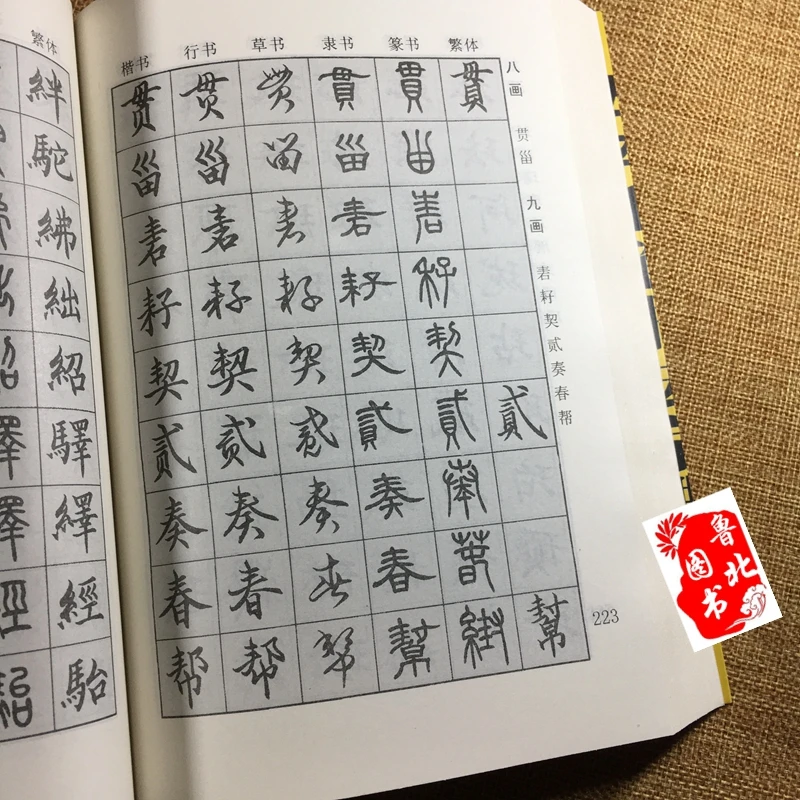 繁体
絆
駝
紼
絀
紹
驛
繹
經
駘
楷书 行书 草书 隶书 篆书 繁体
贯 贯 贯 貫 貫 貫
甾 甾 甾 甾 甾
砉 砉 砉 砉 砉
耔 耔 耔 耔 耔
契 契 契 契 契
贰 贰 贰 貳 貳 貳
奏 奏 奏 奏 奏
春 春 春 春 春
帮 帮 帮 幫 幫
八画
贯甾
九画
砉耔契贰奏春帮
223
鲁北
图书